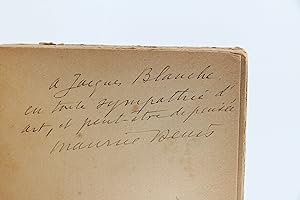 à Jacques Blanche
en toute sympathie d'
art, et peut-être de pensée
Maurice Denis